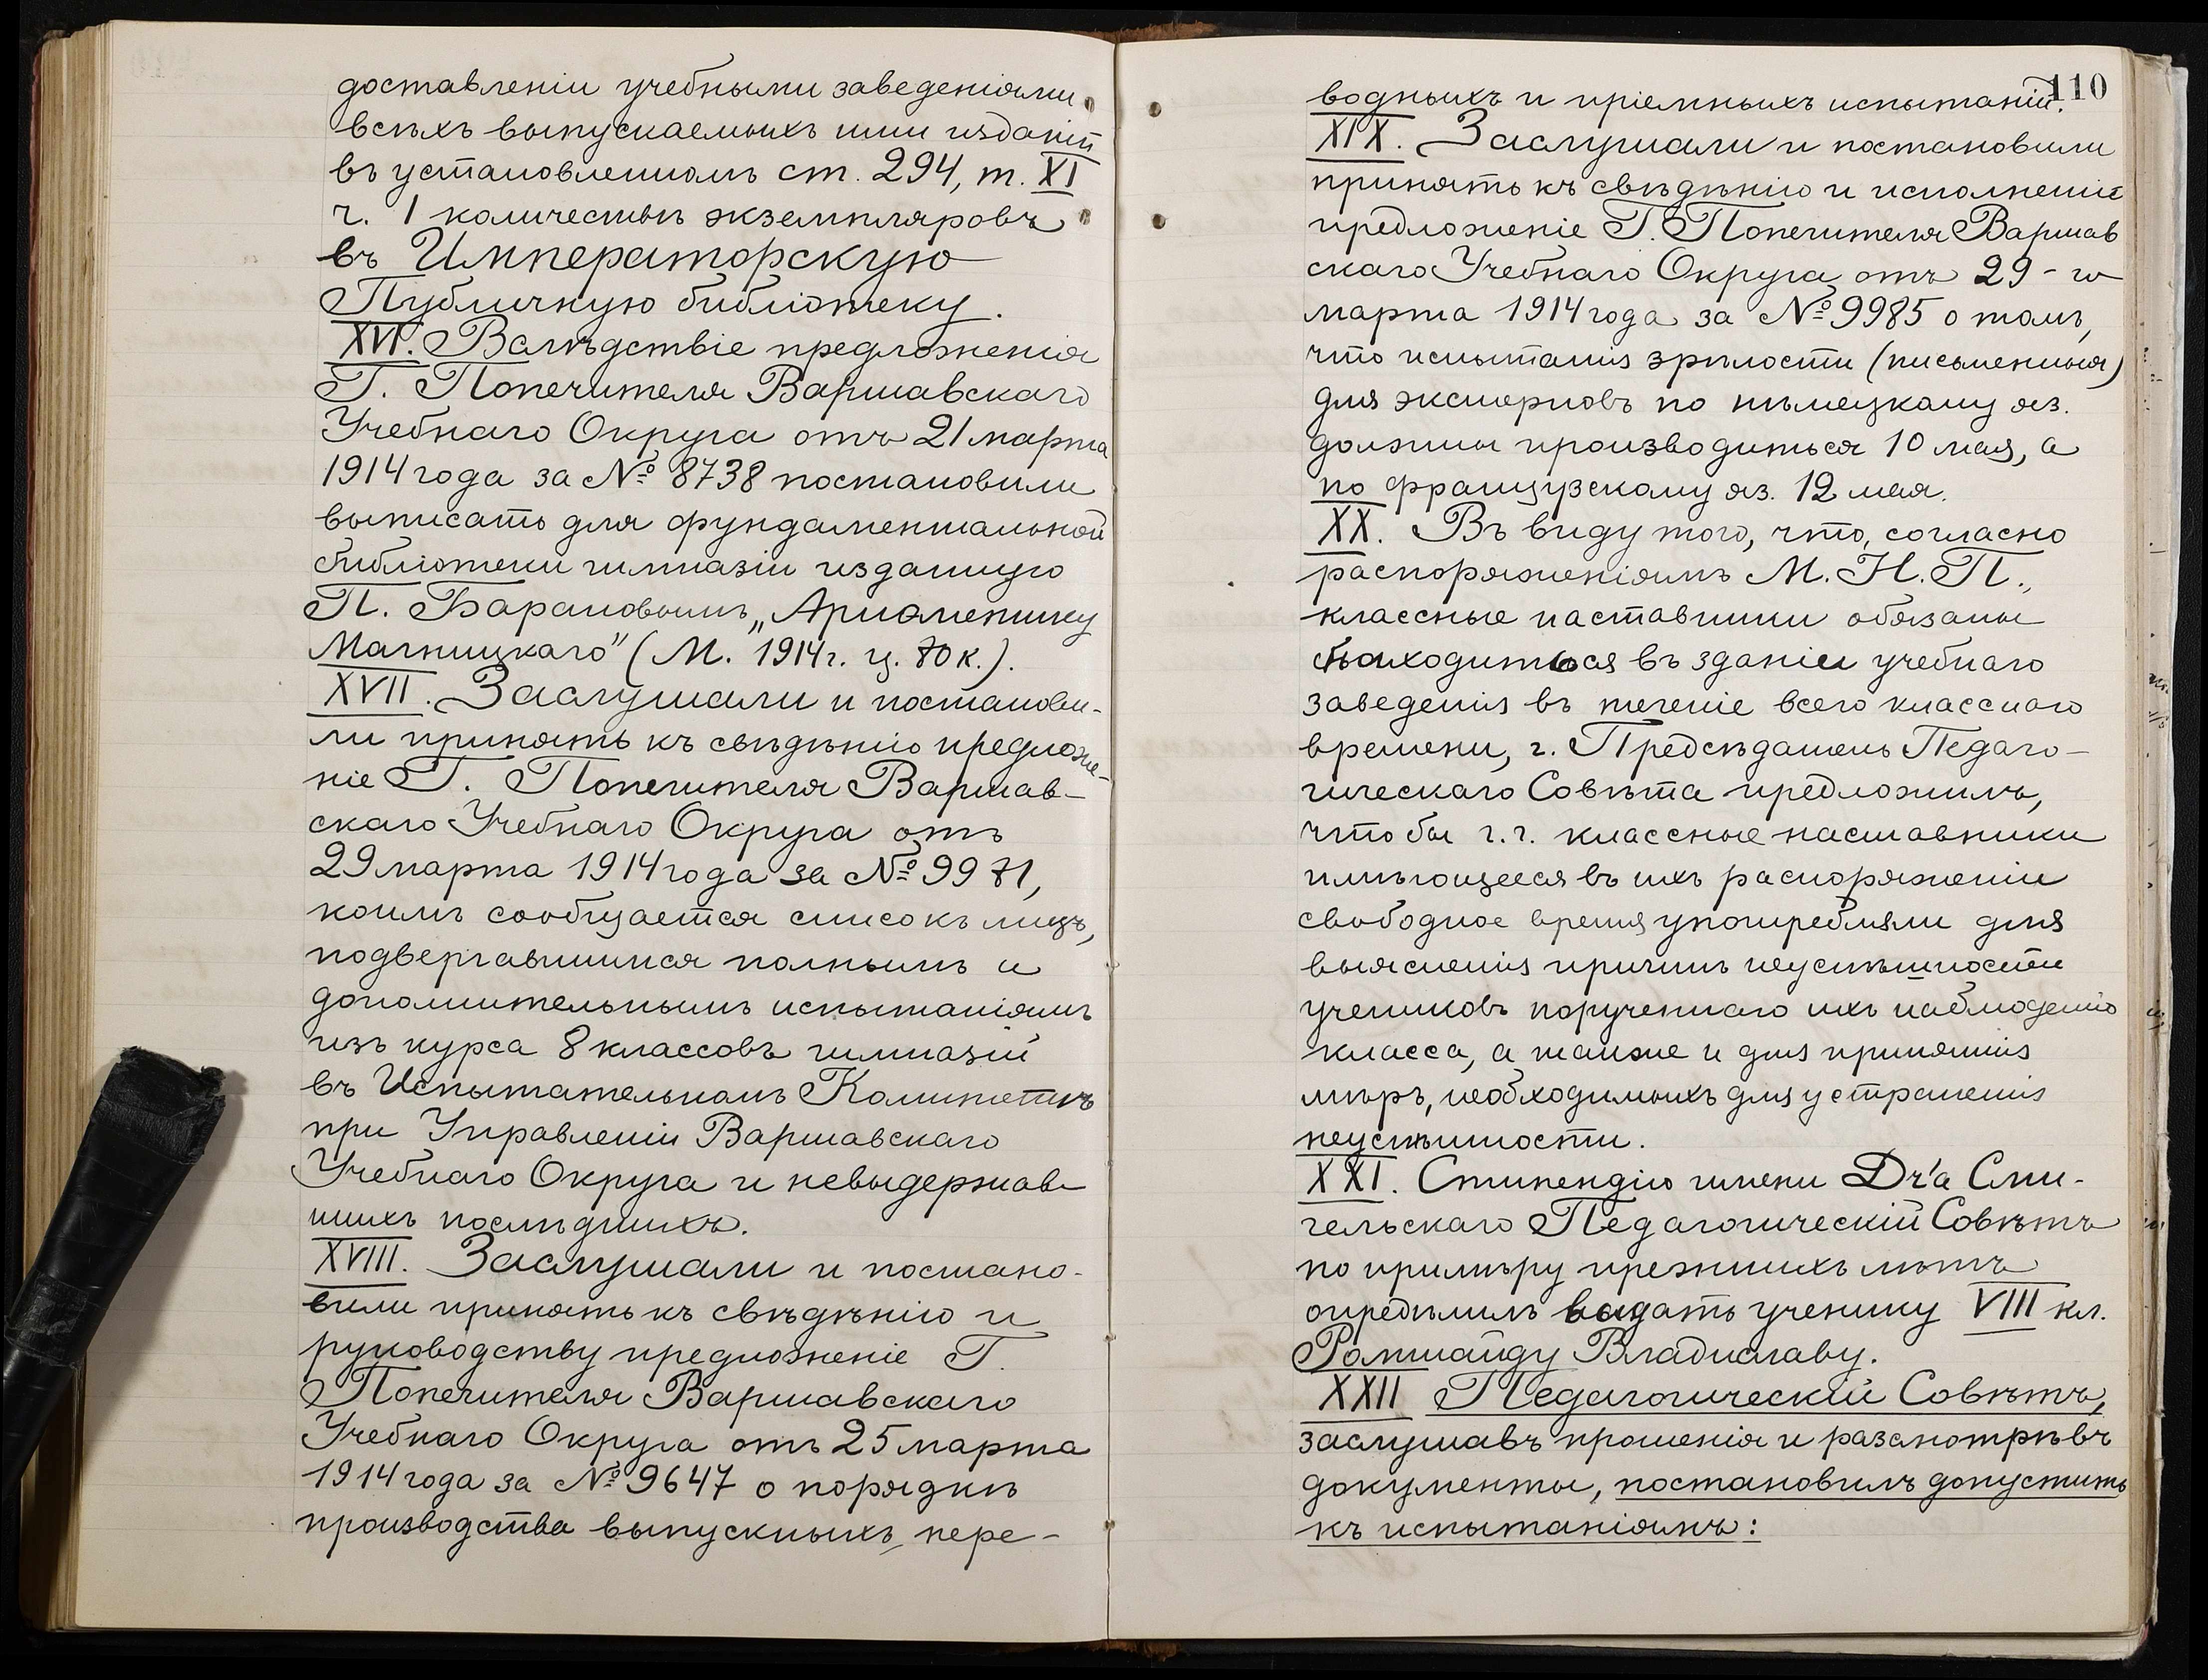 доставленіи учебными заведеніями
всѣхъ выпускаемыхъ ими изданій
въ установленномъ ст. 294, т. XI
ч. 1 количествѣ экземпляровъ
въ Императорскую
Публичную библіотеку.
XVI. Вслѣдствіе предложенія
Г. Попечителя Варшавскаго
Учебнаго Округа отъ 21 марта
1914 года за № 8738 постановили
выписать для фундаментальной
библіотеки гимназіи изданную
П. Барановымъ „Ариѳметику
Магницкаго" (М. 1914 г. ц. 70 к.).
XVII. Заслушали и постанови-
ли принять къ свѣдѣнію предложе-
ніе Г. Попечителя Варшав-
скаго Учебнаго Округа отъ
29 марта 1914 года за № 9971,
коимъ сообщается списокъ лицъ,
подвергавшимся полнымъ и
дополнительнымъ испытаніямъ
изъ курса 8 классовъ гимназій
въ Испытательномъ Комитетѣ
при Управленіи Варшавскаго
Учебнаго Округа и невыдержав-
шихъ послѣднихъ.
XVIII. Заслушали и постано-
вили принять къ свѣдѣнію и
руководству предложеніе Г.
Попечителя Варшавскаго
Учебнаго Округа отъ 25 марта
1914 года за № 9647 о порядкѣ
производства выпускныхъ, пере-
110
водныхъ и пріемныхъ испытаній.
XIX. Заслушали и постановили
принять къ свѣдѣнію и исполненію
предложеніе Г. Попечителя Варшав
скаго Учебнаго Округа отъ 29-го
марта 1914 года за № 9985 о томъ,
что испытанія зрѣлости (письменныя)
для экстерновъ по нѣмецкому яз.
должны производиться 10 мая, а
по французскому яз. 12 мая.
XX. Въ виду того, что, согласно
распоряженіямъ М. Н. П.,
классные наставники обязаны
находиться въ зданіи учебнаго
заведенія въ теченіе всего класснаго
времени, г. Предсѣдатель Педаго-
гическаго Совѣта предложилъ,
чтобы г.г. классные наставники
имѣющееся въ ихъ распоряженіи
свободное время употребляли для
выясненія причинъ неуспѣшности
учениковъ порученнаго ихъ наблюденію
класса, а также и для принятія
мѣръ, необходимыхъ для устраненія
неуспѣшности.
XXI. Стипендію имени Dr'а Сми-
гельскаго Педагогическій Совѣтъ
по примѣру прежнихъ лѣтъ
опредѣлилъ выдать ученику VIII кл.
Ромшайду Владиславу.
XXII Педагогическій Совѣтъ,
заслушавъ прошенія и разсмотрѣвъ
документы, постановилъ допустить
къ испытаніямъ: